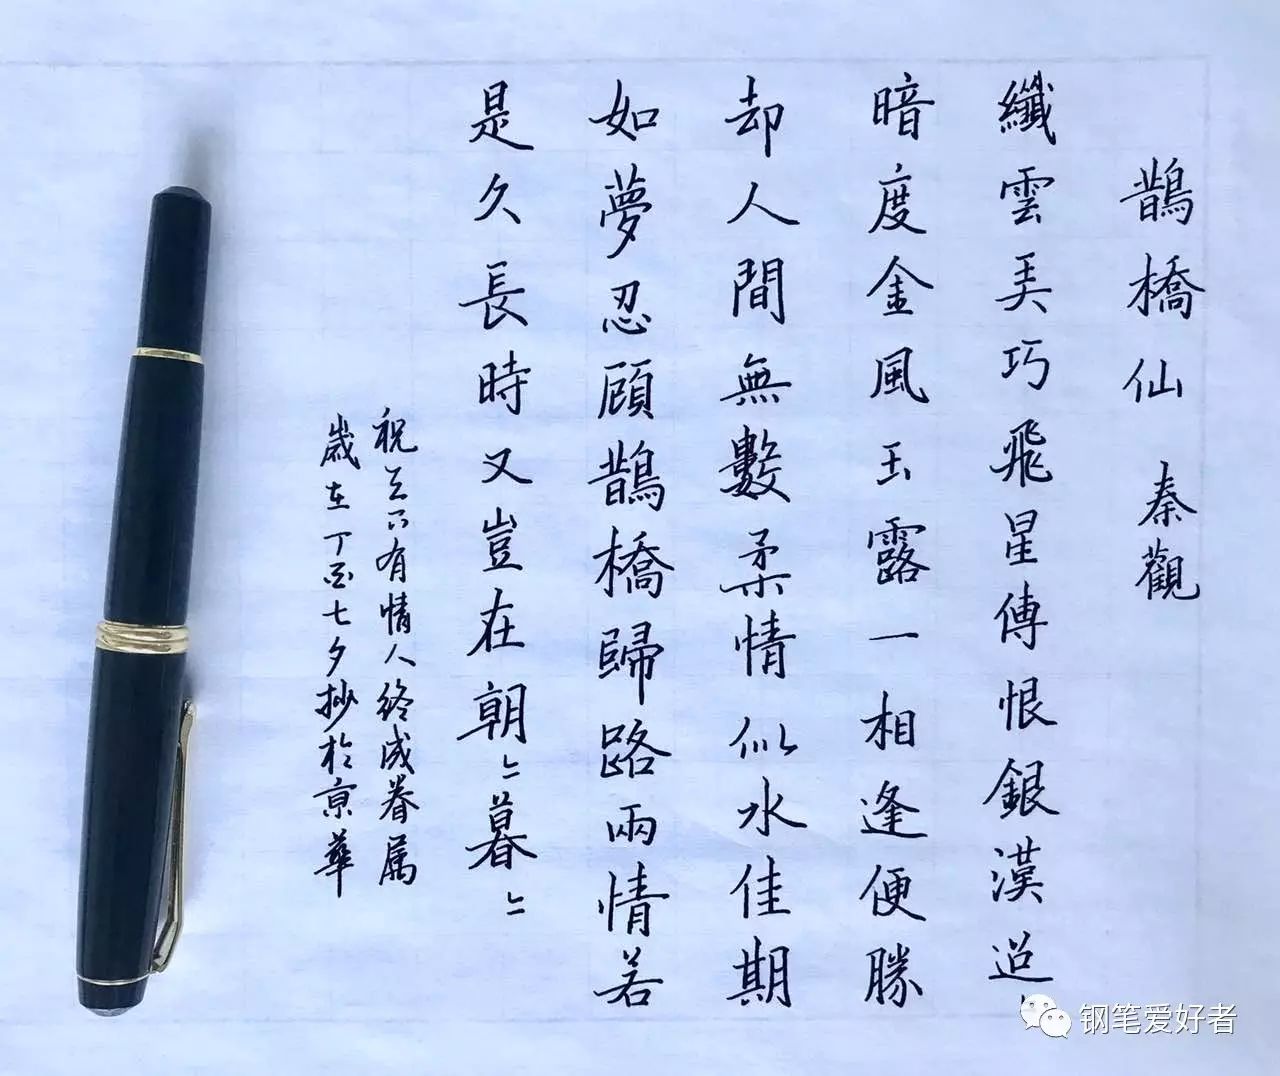 鵲橋仙 秦觀
纖雲弄巧飛星傳恨銀漢迢〻
暗度金風玉露一相逢便勝
却人間無數柔情似水佳期
如夢忍顧鵲橋歸路兩情若
是久長時又豈在朝〻暮〻
祝天下有情人終成眷属
歲在丁酉七夕抄於京華
钢笔爱好者